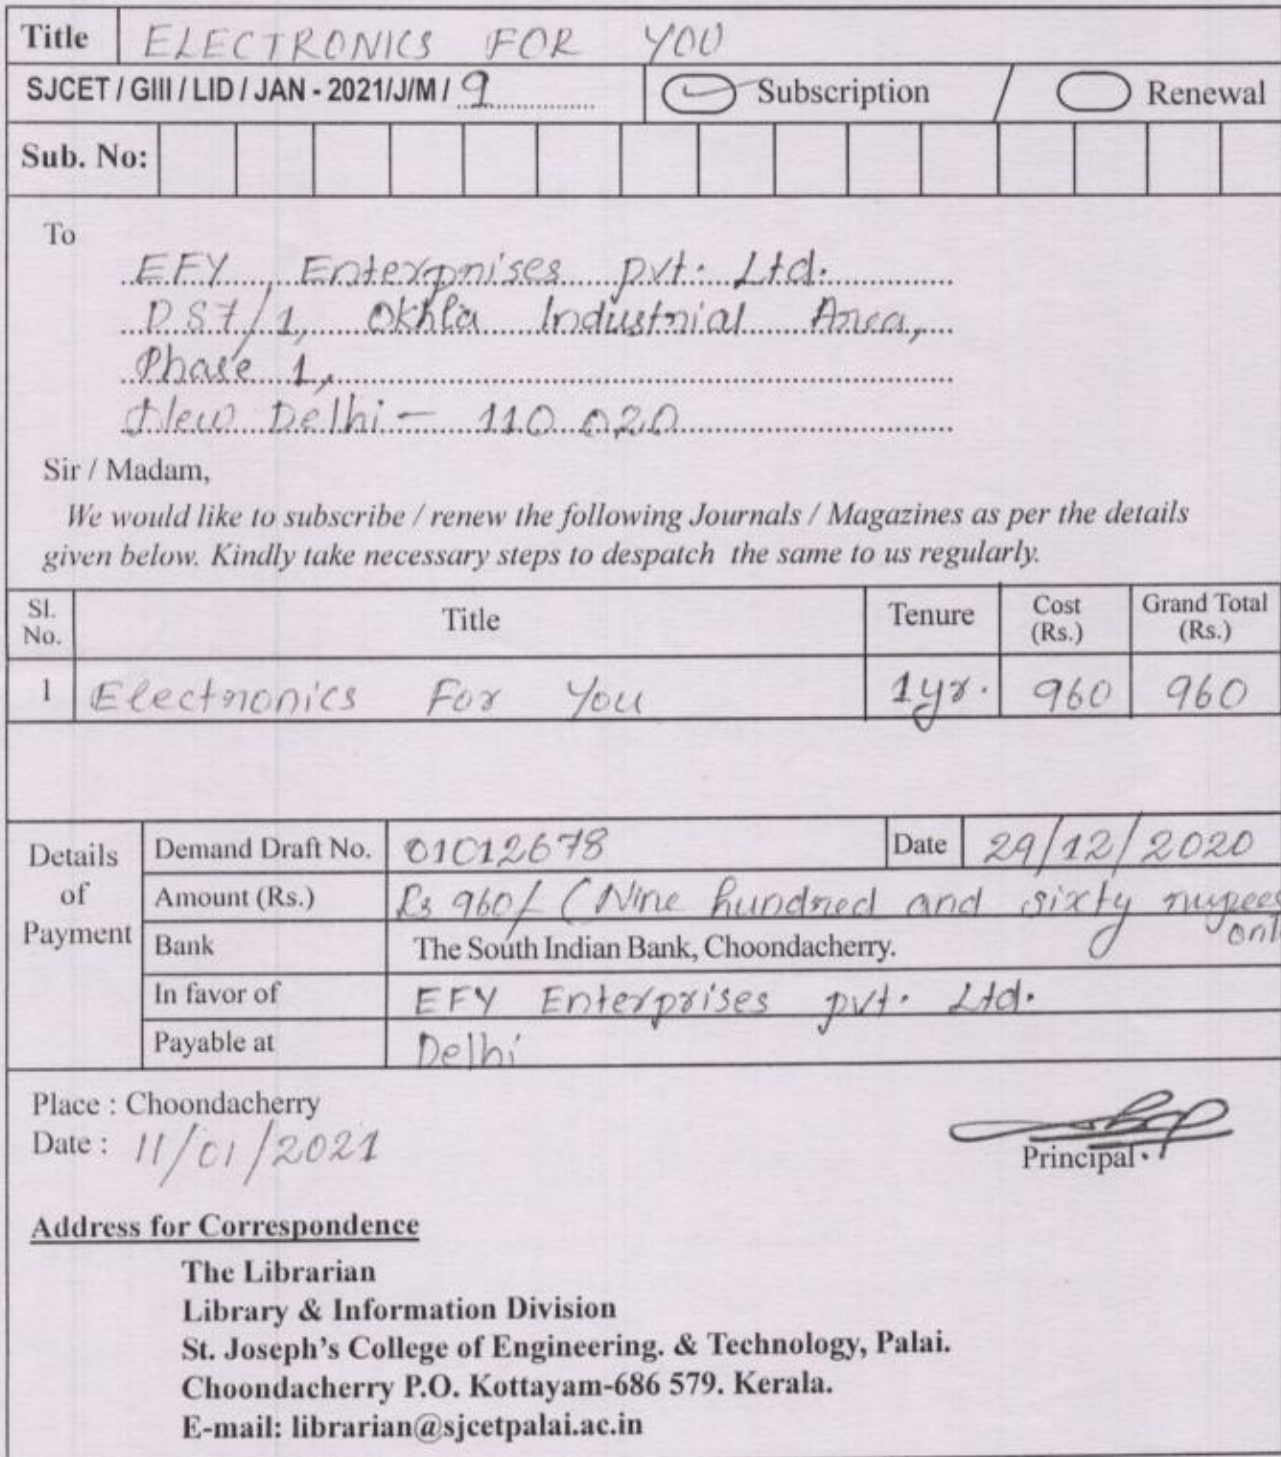 Title ELECTRONICS FOR YOU
SJCET / GIII / LID / JAN - 2021/J/M / 9 Subscription / Renewal
Sub. No:
To
EFY Enterprises pvt. Ltd.
D 87/1, Okhla Industrial Area,
Phase 1,
New Delhi - 110 020
Sir / Madam,
We would like to subscribe / renew the following Journals / Magazines as per the details
given below. Kindly take necessary steps to despatch the same to us regularly.
Sl. No. Title Tenure Cost (Rs.) Grand Total (Rs.)
1 Electronics For You 1yr. 960 960
Details of Payment
Demand Draft No. 01012678 Date 29/12/2020
Amount (Rs.) Rs 960/- (Nine hundred and sixty rupees
onl
Bank The South Indian Bank, Choondacherry.
In favor of EFY Enterprises pvt. Ltd.
Payable at Delhi
Place : Choondacherry
Date : 11/01/2021
Principal
Address for Correspondence
The Librarian
Library & Information Division
St. Joseph's College of Engineering. & Technology, Palai.
Choondacherry P.O. Kottayam-686 579. Kerala.
E-mail: librarian@sjcetpalai.ac.in